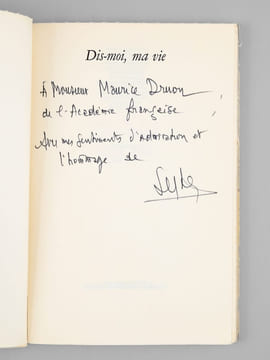 Dis-moi, ma vie
A Monsieur Maurice Druon,
de l'Académie française
Avec mes sentiments d'admiration et
l'hommage de